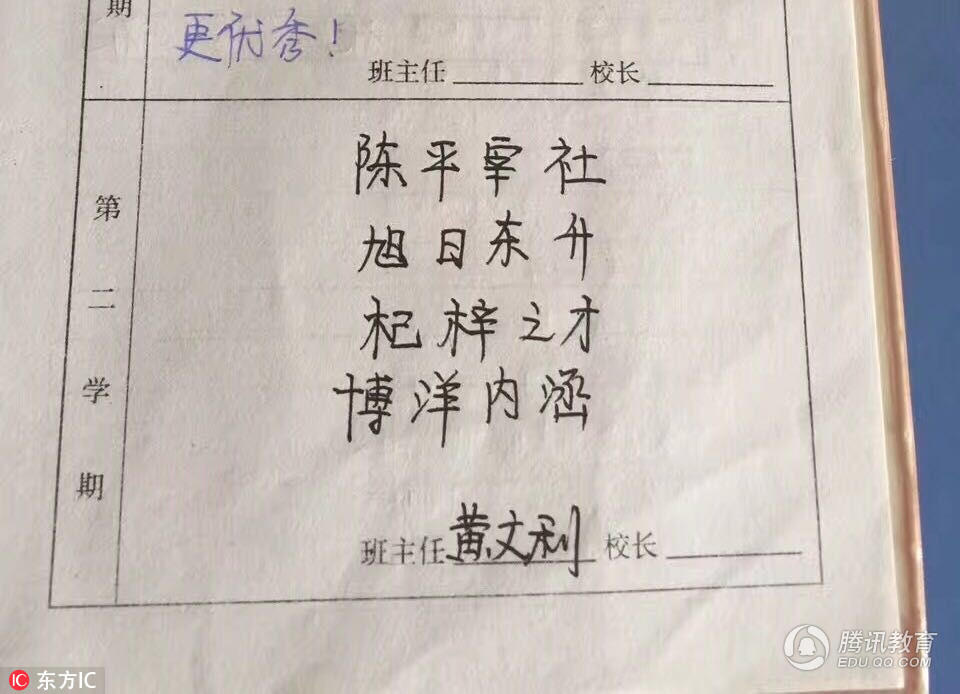 期
更优秀！
班主任 校长
第二学期
陈平宰社
旭日东升
杞梓之才
博洋内涵
班主任 黄文利 校长
腾讯教育
EDU.QQ.COM
东方IC